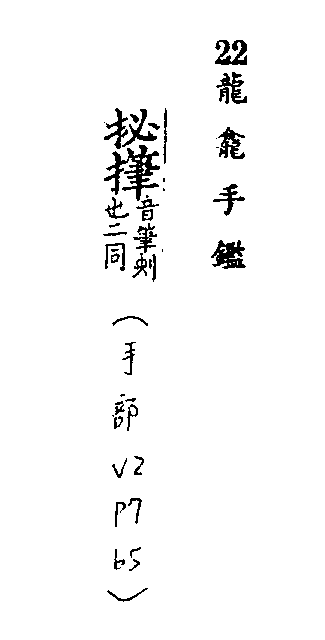 22龍龕手鑑
㧙
音筆刾
也二同
(手部V2P7b5)